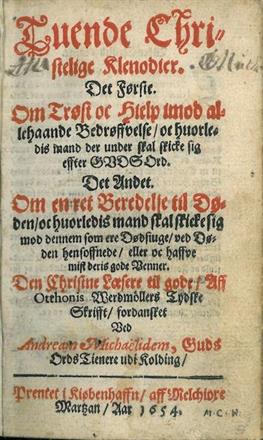 Tuende Chri-
stelige Klenodier.
Det Første.
Om Trøst oc Hielp imod al-
lehaande Bedrøffvelse / oc huorle-
dis mand der under skal skicke sig
effter GUDS Ord.
Det Andet.
Om en ret Beredelse til Dø-
den / oc huorledis mand skal skicke sig
mod dennem som ere Dødsiuge / ved Dø-
den hensoffnede / eller oc haffve
mist deris gode Venner.
Den Christne Læsere til gode / Aff
Otthonis Werdmöllers Tydske
Skrifft / fordansket
Ved
Andream Michaëlidem, Guds
Ords Tienere udi Kolding /
Prentet i Kiøbenhaffn / aff Melchiore
Martzan / Aar 1654.
M. C. W.